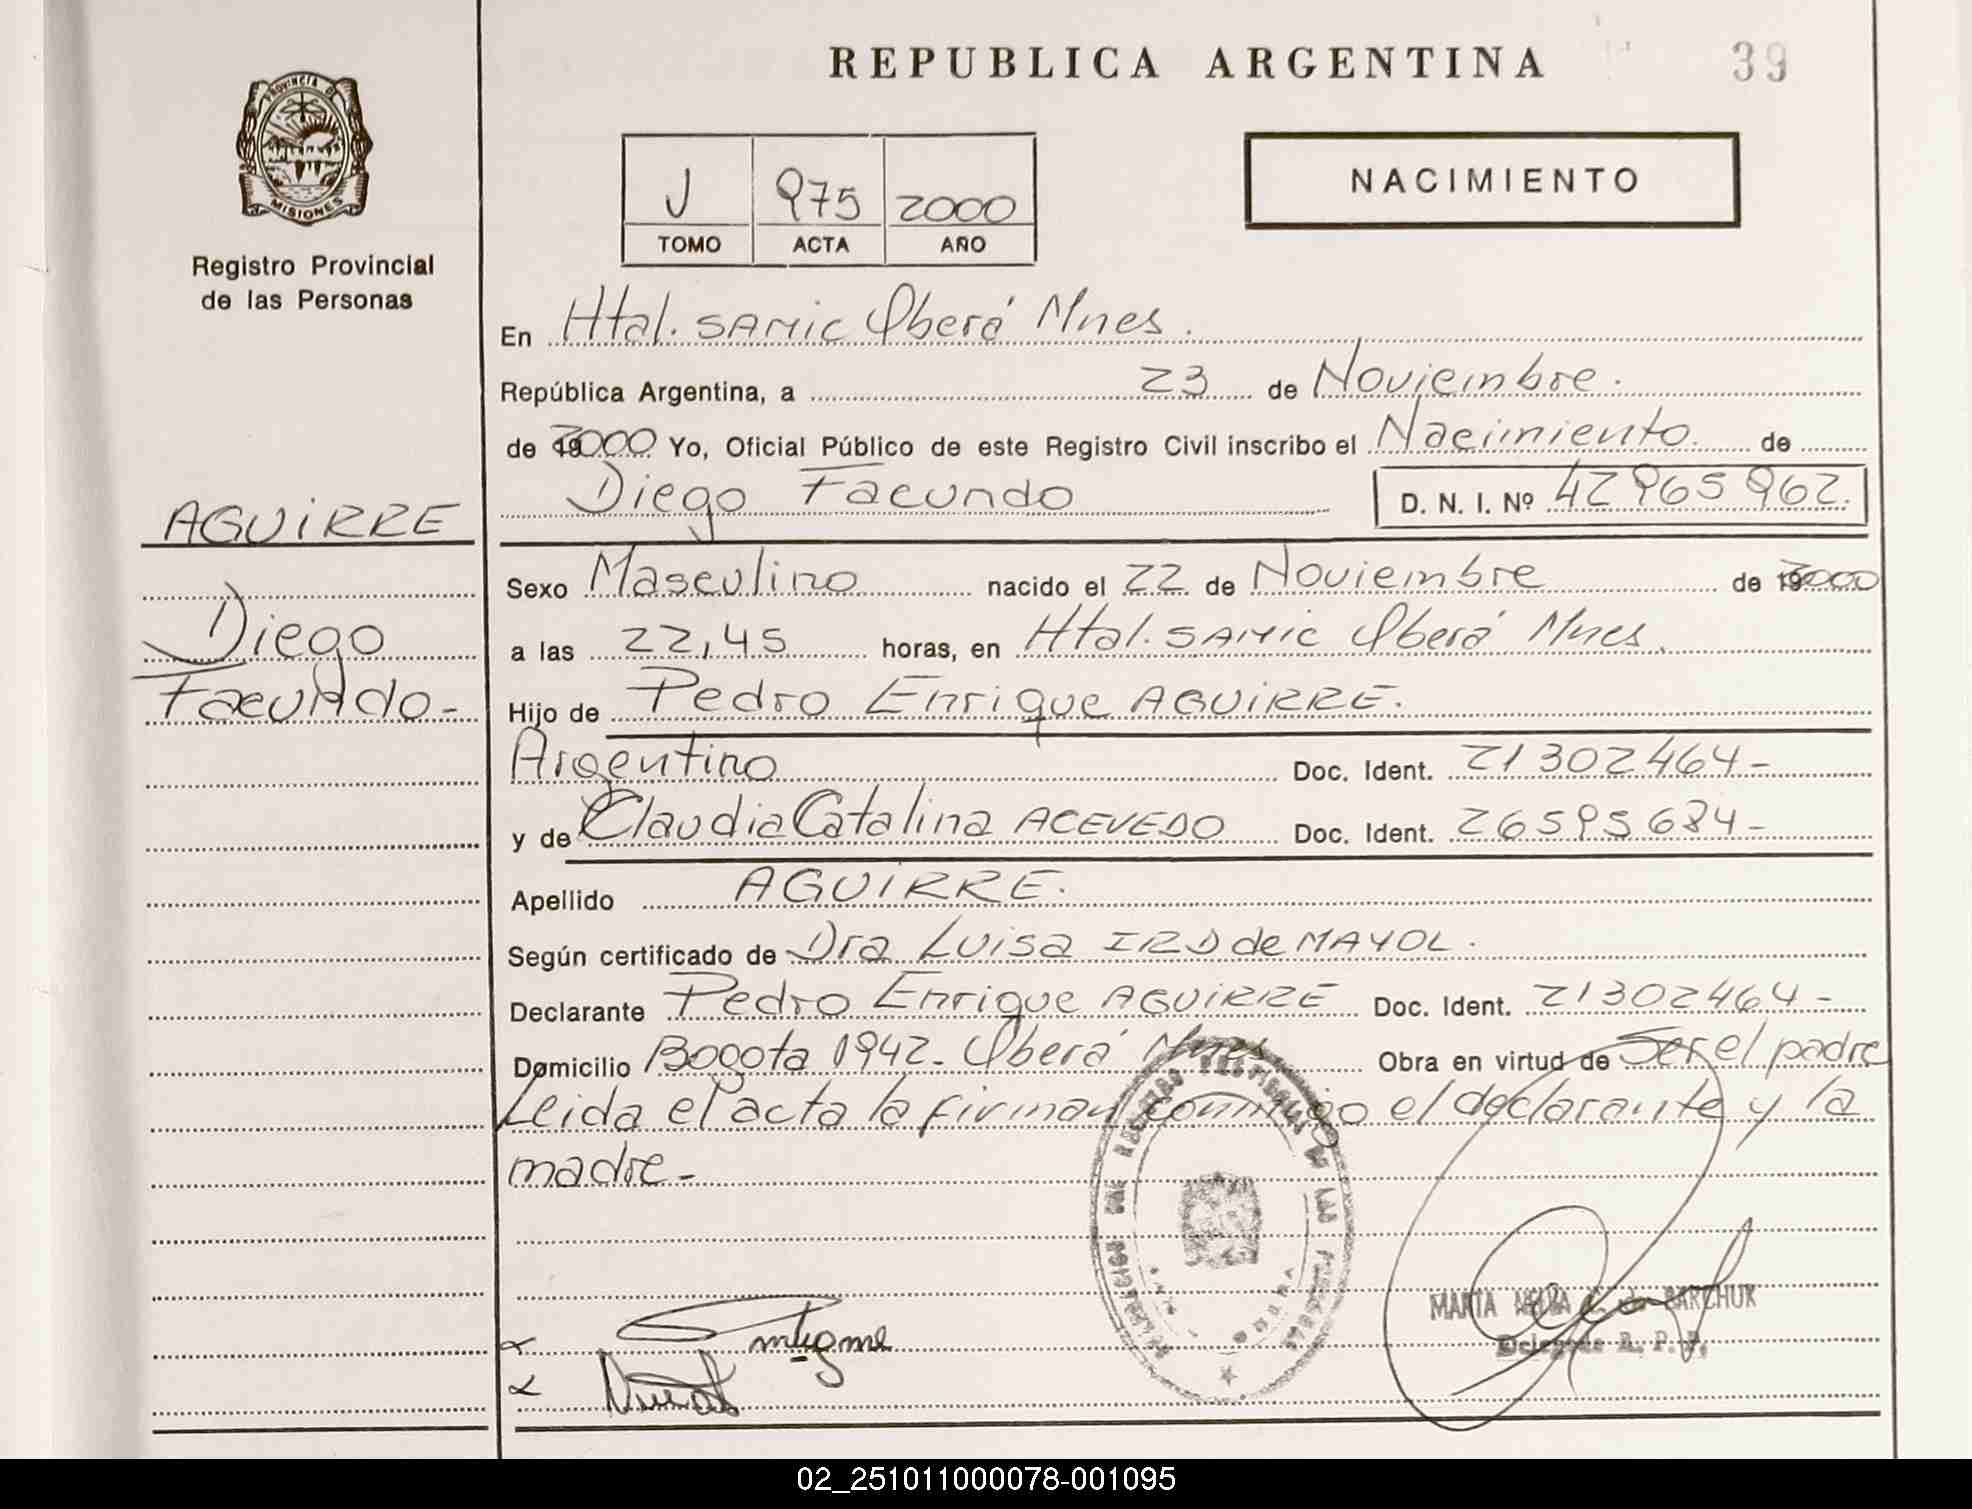 REPUBLICA ARGENTINA
39
PROVINCIA DE
MISIONES
Registro Provincial
de las Personas
J 975 2000
TOMO ACTA AÑO
NACIMIENTO
En Htal. SAMIC Oberá Mnes.
República Argentina, a 23 de Noviembre.
de 2000 Yo, Oficial Público de este Registro Civil inscribo el Nacimiento de
Diego Facundo D. N. I. Nº 42965962.
AGUIRRE
Diego
Facundo-
Sexo Masculino nacido el 22 de Noviembre de 2000
a las 22,45 horas, en Htal. SAMIC Oberá Mnes.
Hijo de Pedro Enrique AGUIRRE.
Argentino Doc. Ident. 21302464-
y de Claudia Catalina ACEVEDO Doc. Ident. 26595684-
Apellido AGUIRRE.
Según certificado de Dra Luisa IRD de MAYOL.
Declarante Pedro Enrique AGUIRRE Doc. Ident. 21302464-
Domicilio Bogota 1942- Oberá Mnes Obra en virtud de Ser el padre
Leida el acta la firman conmigo el declarante y la
madre-
MARIA BARCHUK
Delegada R. P. P.
02_251011000078-001095